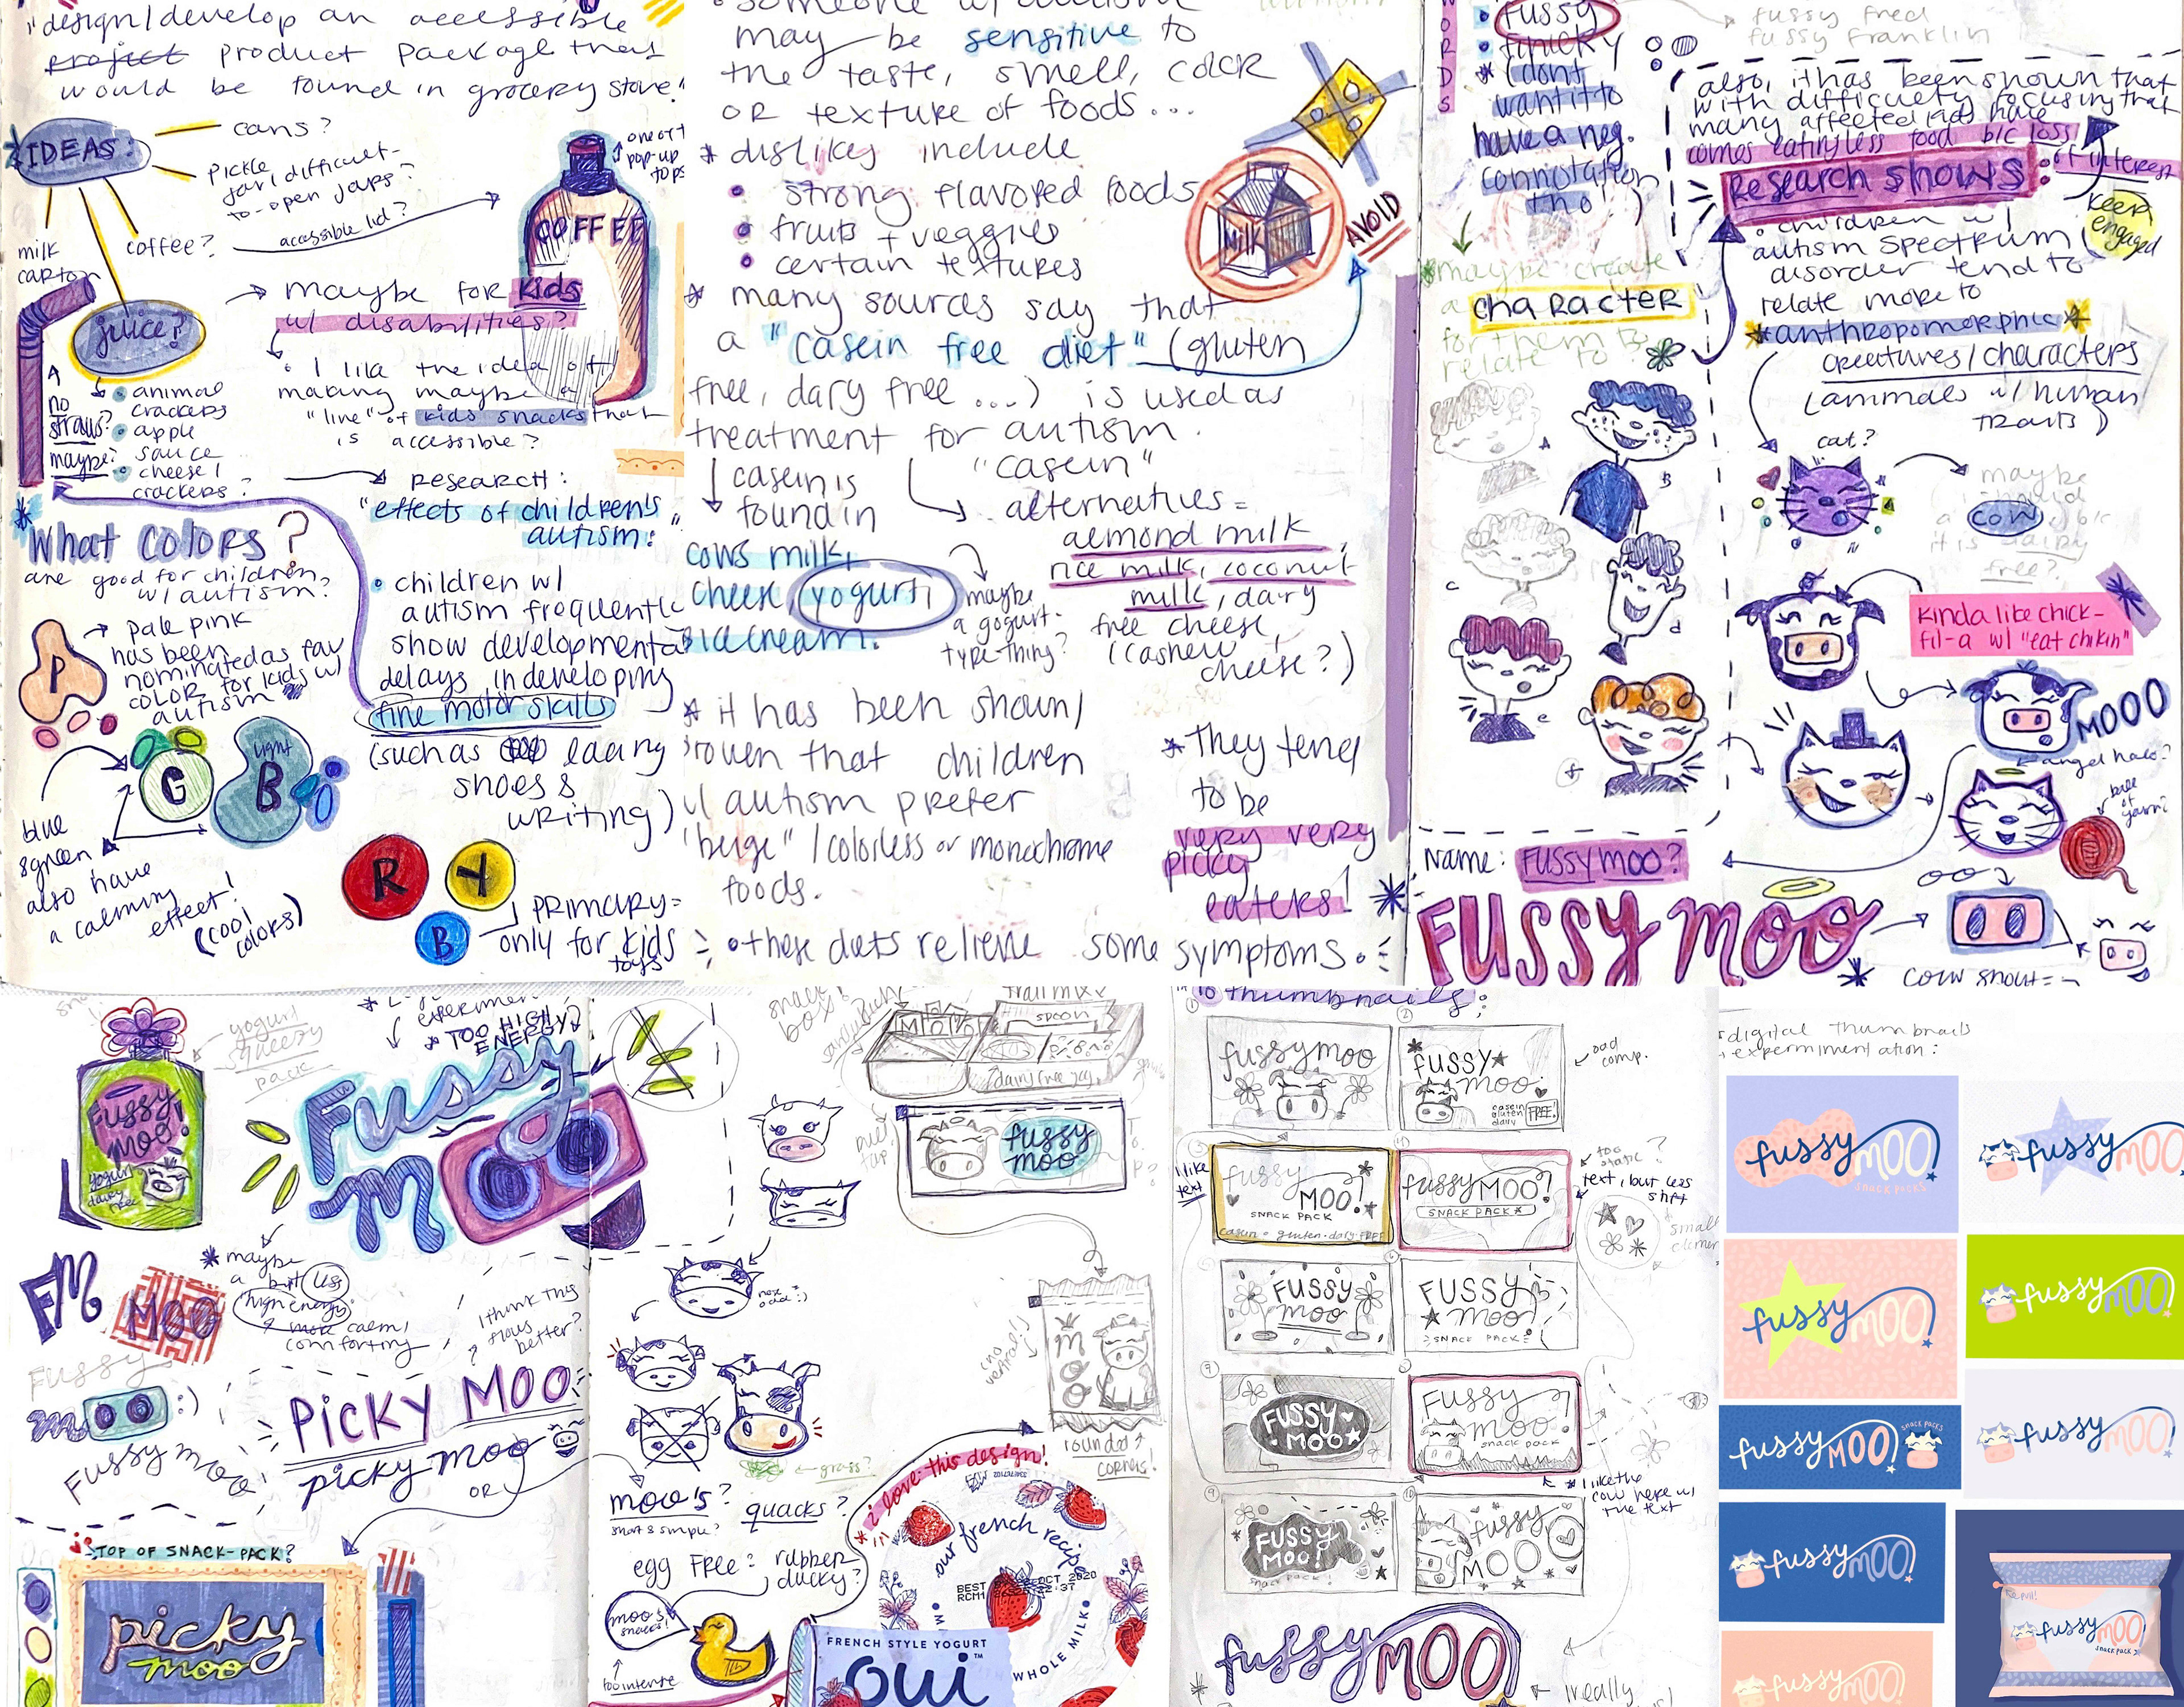 design/develop an accessible
project product package that
would be found in grocery store."
IDEAS:
cans?
pickle
jar/difficult-
to-open jars?
accessible lid?
coffee?
milk
carton
juice?
COFFEE
pop-up
tops
maybe for kids
w/ disabilities?
I like the idea of
making maybe a
"line" of kids snacks that
is accessible?
no
straws?
maybe?
animal
crackers
apple
sauce
cheese/
crackers?
research:
"effects of children's
autism:
What colors?
are good for children
w/ autism?
P
pale pink
has been
nominated as fav
color for kids w/
autism
G
light
B
blue
& green
also have
a calming
effect!
(cool
colors)
children w/
autism frequently
show developmental
delays in developing
fine motor skills
(such as lacing
shoes &
writing)
R
Y
B
primary =
only for kids
toys
someone w/ autism
may be sensitive to
the taste, smell, color
or texture of foods...
dislikes include
strong flavored foods
fruits + veggies
certain textures
MILK
AVOID
many sources say that
a "casein free diet" (gluten
free, dary free ...) is used as
treatment for autism.
casein is
found in
cows milk,
cheese, yogurt,
ice cream.
maybe
a yogurt-
type thing?
"casein"
alternatives =
almond milk,
rice milk, coconut
milk, dary
free cheese,
(cashew
cheese?)
it has been shown/
proven that children
w/ autism prefer
"beige" / colorless or monochrome
foods.
They tend
to be
very very
picky
eaters!
these diets relieve some symptoms.
WORDS
fussy
finicky
(dont
want it to
have a neg.
connotation
tho!)
fussy fred
fussy franklin
also, it has been shown that
with difficulty focusing that
many affected kids have
comes eating less food b/c loss
of interest
Research shows:
keep
engaged
children w/
autism spectrum
disorder tend to
relate more to
anthropomorphic
creatures/characters
(animals w/ human
traits)
maybe create
a character
for them to
relate to?
A
B
C
d
e
f
cat?
maybe
a cow
it is dairy
free?
kinda like chick-
fil-a w/ "eat chikin"
MOOO
angel halo?
ball
of
yarn?
Name: FUSSY MOO?
FUSSY MOO
cow snout =
yogurt
squeezy
pack
Fussy
moo!
yogurt
dairy
free
experiment
TOO HIGH
ENERGY?
Fussy
moo
FM
MOO
maybe
a bit less
"high energy"
& more calm/
comforting
I think this
flows
better?
Fussy
moo
:)
Fussy moo
PICKY MOO
picky moo
OR
TOP OF SNACK-PACK?
picky
moo
snack
box?
sandwich
trail mix
spoon
dairy free yog.
fussy
moo
moo
rounded
corners!
grass?
moo's?
short & simple?
quacks?
egg free =
rubber
ducky?
moo's
snacks!
too intense
i love this design!
our french recipe
BEST
RCM1
OCT 2020
22:37
WHOLE MILK
FRENCH STYLE YOGURT
oui™
10 thumbnails:
fussymoo
fussy
moo
casein
gluten
dairy
FREE!
odd
comp.
I like
text
fussy
MOO!
SNACK PACK
casein • gluten • dairy FREE
fussyMOO!
SNACK PACK
too
static?
text, but less
shift
small
FUSSY
moo
FUSSY
moo!
SNACK PACK
FUSSY
MOO
FUSSY
moo!
snack pack
I like the
cow here w/
the text
FUSSY
MOO!
snack pack!
fussy
MOO
fussyMOO!
I really
digital thumbnails
experimentation:
fussyMOO!
SNACK PACKS
fussyMOO!
fussyMOO!
fussyMOO!
fussyMOO!
SNACK PACKS
fussyMOO!
fussyMOO!
fussyMOO!
pull!
fussyMOO!
SNACK PACK